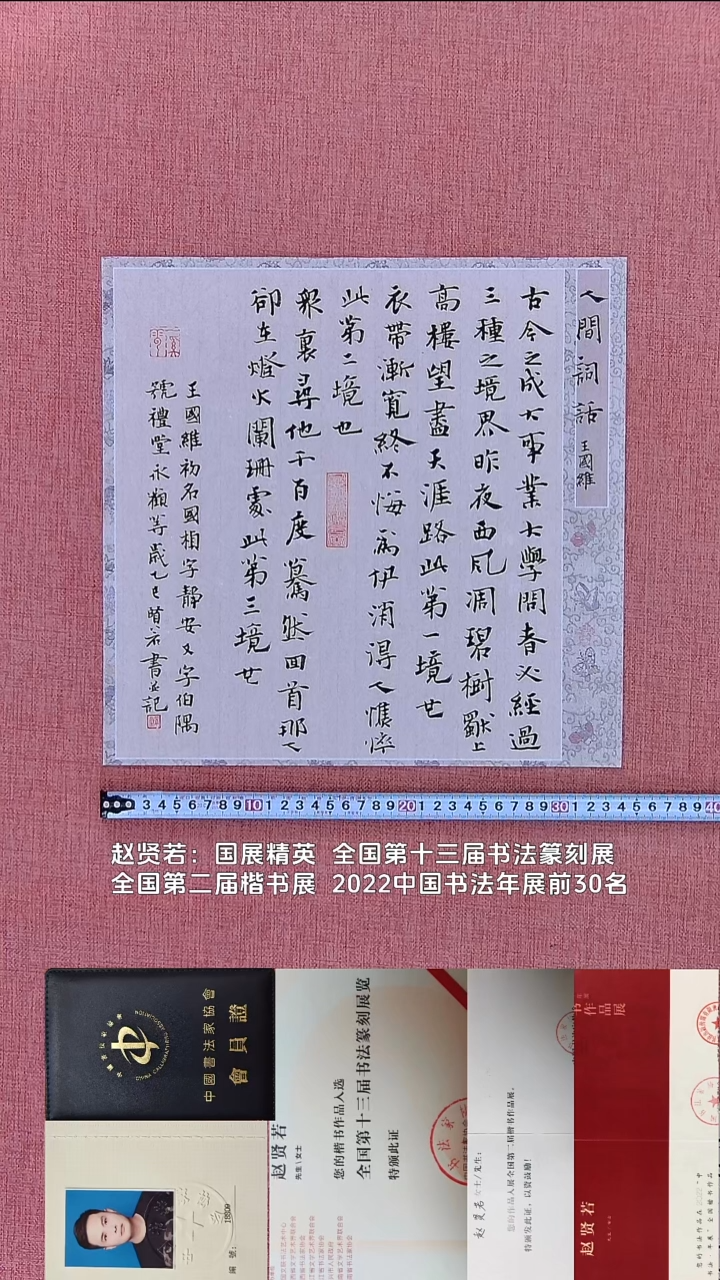 人間詞話
王國維
古今之成大事業大學問者必經過
三種之境界昨夜西风凋碧樹獨上
高樓望盡天涯路此第一境也
衣帶漸寬終不悔為伊消得人憔悴
此第二境也
眾裏尋他千百度驀然回首那人
卻在燈火闌珊處此第三境也
王國維初名國楨字靜安又字伯隅
號禮堂永觀等歲乙巳賢若書並記
3 4 5 6 7 8 9 10 1 2 3 4 5 6 7 8 9 20 1 2 3 4 5 6 7 8 9 30 1 2 3 4 5 6 7 8 9 40
赵贤若：国展精英 全国第十三届书法篆刻展
全国第二届楷书展 2022中国书法年展前30名
中國書法家協會
會員證
編號：
赵贤若
先生\女士
您的楷书作品入选
全国第十三届书法篆刻展览
特颁此证
赵贤若女士/先生：
您的作品入展全国第二届楷书作品展。
特颁发此证，以资鼓励！
作品展
赵贤若